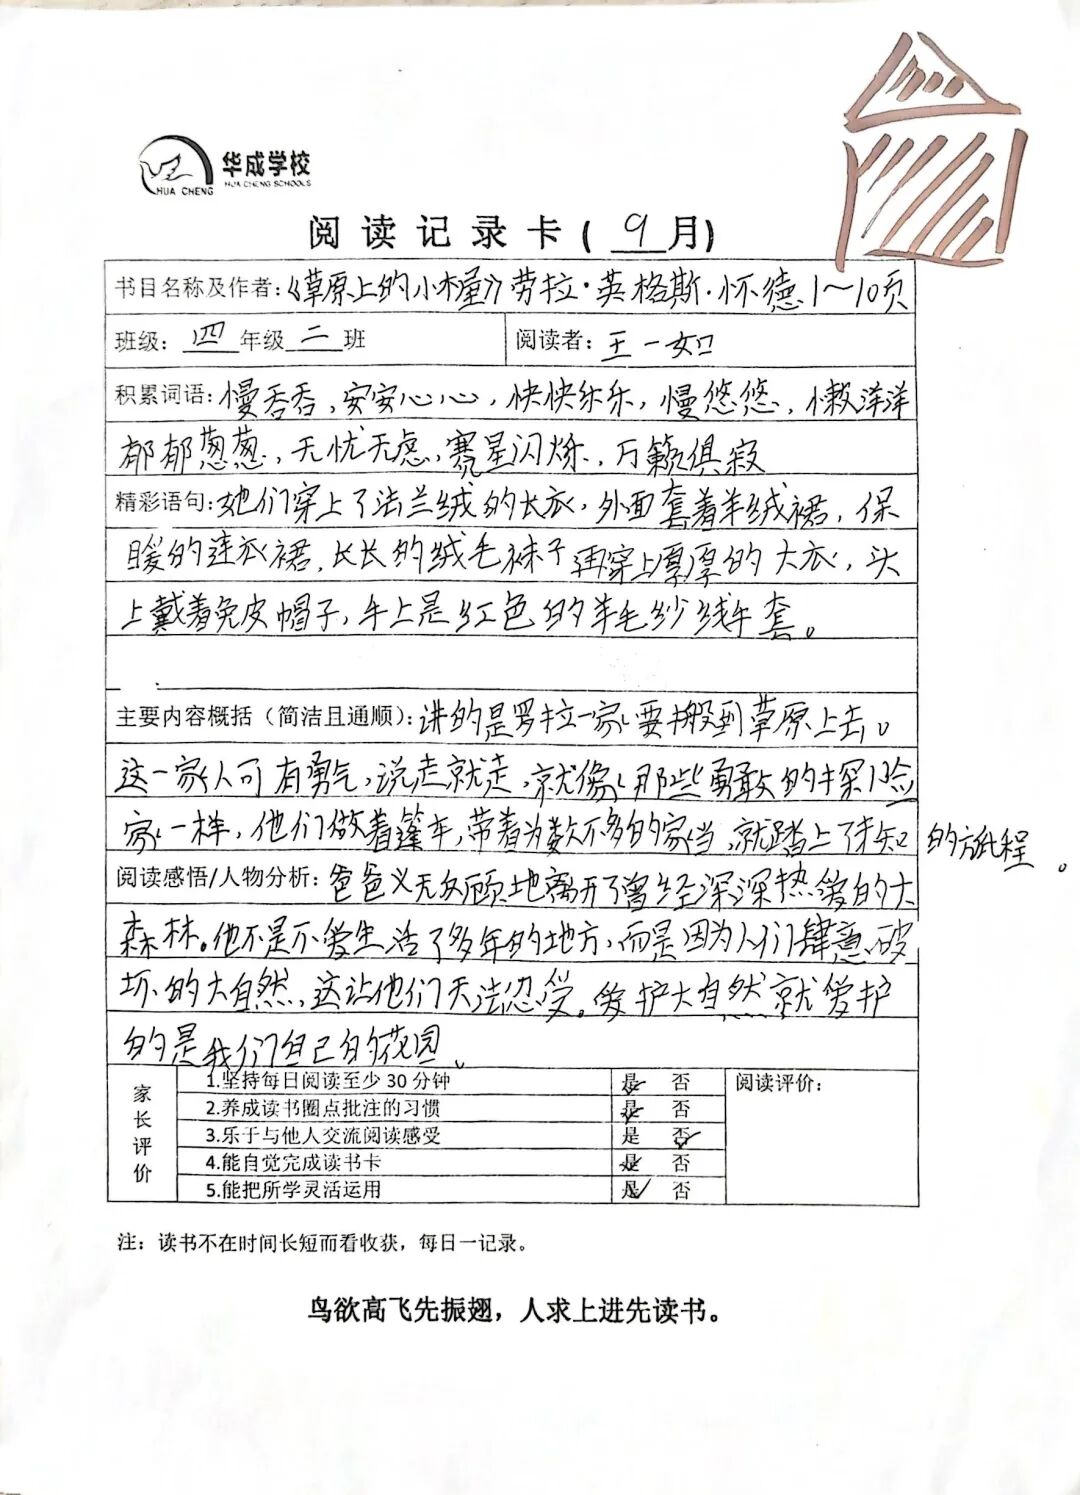 华成学校
HUA CHENG SCHOOLS
HUA CHENG
阅读记录卡( 9 月)
书目名称及作者:《草原上的小木屋》劳拉·英格斯·怀德 1~10页
班级: 四 年级 二 班 阅读者: 王一如
积累词语: 慢吞吞,安安心心,快快乐乐,慢悠悠,懒洋洋
郁郁葱葱,无忧无虑,繁星闪烁,万籁俱寂
精彩语句: 她们穿上了法兰绒的长衣,外面套着羊绒裙,保
暖的连衣裙,长长的绒毛袜子再穿上厚厚的大衣,头
上戴着兔皮帽子,手上是红色的羊毛纱线手套。
主要内容概括(简洁且通顺): 讲的是罗拉一家要搬到草原上去。
这一家人可有勇气,说走就走,就像那些勇敢的探险
家一样,他们做着篷车,带着为数不多的家当,就踏上了未知的旅程。
阅读感悟/人物分析: 爸爸义无反顾地离开了曾经深深热爱的大
森林。他不是不爱生活了多年的地方,而是因为人们肆意破
坏的大自然,这让他们无法忍受。爱护大自然就爱护
的是我们自己的花园。
家长评价
1.坚持每日阅读至少30分钟 是 否 阅读评价:
2.养成读书圈点批注的习惯 是 否
3.乐于与他人交流阅读感受 是 否
4.能自觉完成读书卡 是 否
5.能把所学灵活运用 是 否
注:读书不在时间长短而看收获,每日一记录。
鸟欲高飞先振翅,人求上进先读书。